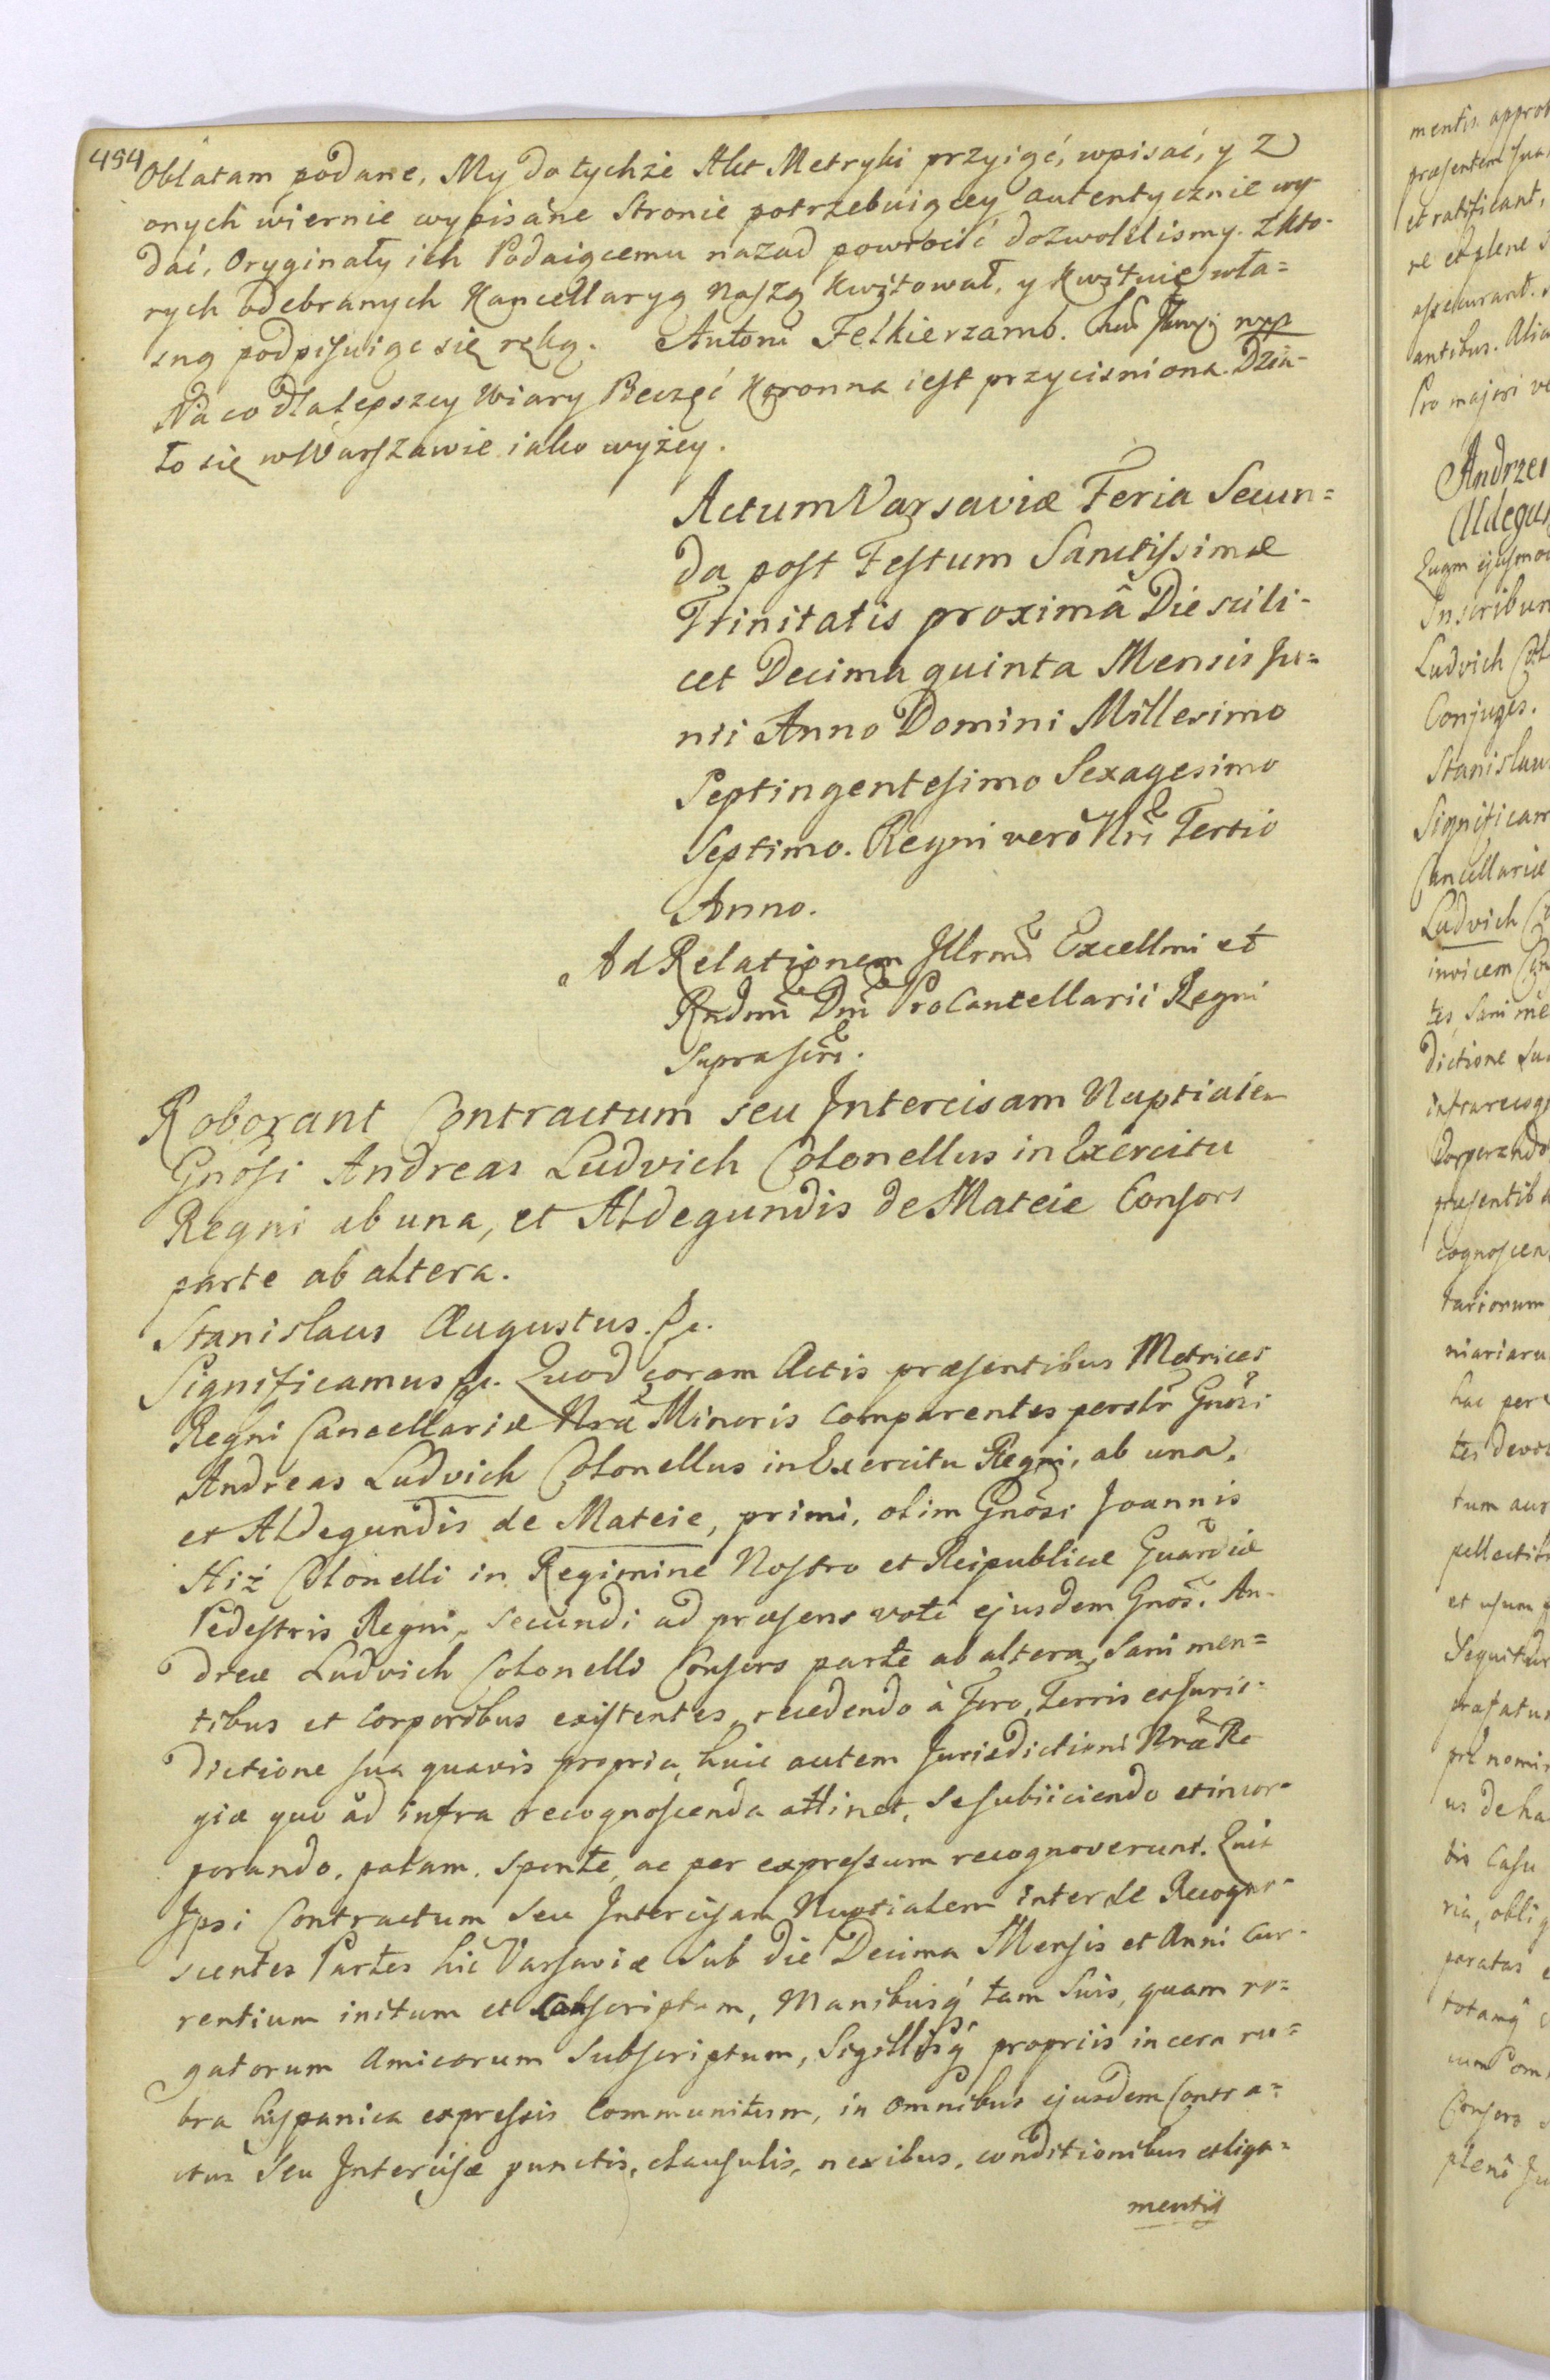 454
Oblatam podane, My do tychże Akt Metryki przyiąć, wpisać, y z
onych wiernie wypisane Stronie potrzebuiącey autentycznie wy-
dać, Oryginały ich Podaiącemu nazad powrocić dozwolilismy. z kto-
rych odebranych Kancellaryą Naszą kwitował, y kwituie wła=
sną podpisuiąc się ręką. Antoni Felkierzamb. mp
Na co dla lepszey Wiary Pieczęć Koronna iest przycisniona. Dzia-
ło się w Warszawie iako wyżey.
Actum Varsaviæ Feria Secun=
da post Festum Sanctissimæ
Trinitatis proximâ Die scili-
cet Decima quinta Mensis Ju=
nii Anno Domini Millesimo
Septingentesimo Sexagesimo
Septimo. Regni verò Nri Tertio
Anno.
Ad Relationem Illrmi Excellmi et
Rndmi Dni ProCancellarii Regni
suprascri.
Roborant Contractum seu Intercisam Nuptialem
Gnosi Andreas Ludvich Colonellus in Exercitu
Regni ab una, et Aldegundis de Mateie Consors
parte ab altera.
Stanislaus Augustus. &c.
Significamus &c. Quod coram Actis præsentibus Metrices
Regni Cancellariæ Nræ Minoris Comparentes perslr Gnosi
Andreas Ludvich Colonellus in Exercitu Regni, ab una,
et Aldegundis de Mateie, primi, olim Gnosi Joannis
Hiż Colonelli in Regimine Nostro et Reipublicæ Guardiæ
Pedestris Regni, secundi ad præsens voti ejusdem Gnosi An-
dreæ Ludvich Colonelli Consors parte ab altera, Sani men=
tibus et Corporibus existentes, recedendo à Foro, Terris et Juris-
dictione sua quavis propria, huic autem Jurisdictioni Nræ Re
giæ quo ad infra recognoscenda attinet, se subiiciendo et incor-
porando, palam, sponte, ac per expressum recognoverunt. Quia
Ipsi Contractum seu Intercisam Nuptialem inter se Recogno-
scentes Partes hic Varsaviæ sub die Decima Mensis et Anni cur-
rentium initum et conscriptum, Manibusq́ tam suis, quam ro=
gatorum Amicorum Subscriptum, Sigillisq́ propriis in cera ru=
bra hispanica expressis Communitum, in omnibus ejusdem Contra=
ctus seu Intercisæ punctis, clausulis, nexibus, conditionibus et liga=
mentis
mentis. approb
præsentem sua
et ratificant,
re et plene
assecurant.
antibus. Alia
Pro majori
Andrzei
Aldegu
Quam ejusmo
Inscribun
Ludvich Col
Conjuges.
Stanislau
Significam
Cancellariæ
Ludvich
invicem
tes, Sani
dictione
infrarecog
corporando
præsentib
cognoscen
tariorum
niariaru
hac per
tes
tum
pellectil
et usum
Sequitur
præfatus
nomi
us de ha
Casu
ria, oblig
paratas
totamq́
Consors
plenè